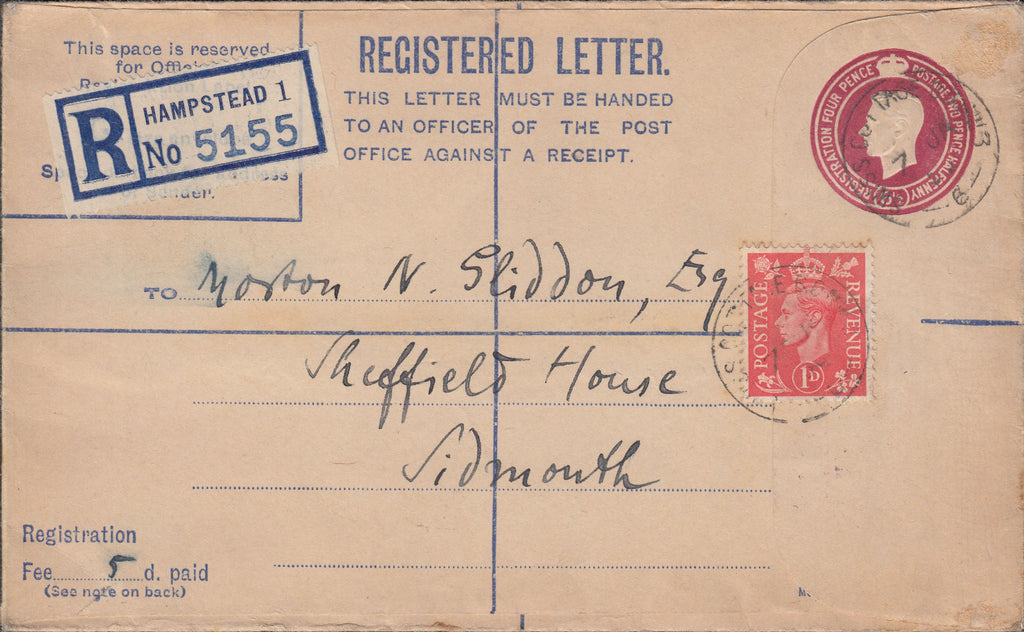 This space is reserved
for
HAMPSTEAD 1
R No 5155
REGISTERED LETTER.
THIS LETTER MUST BE HANDED
TO AN OFFICER OF THE POST
OFFICE AGAINST A RECEIPT.
REGISTRATION FOUR PENCE
POSTAGE TWO PENCE HALFPENNY
POSTAGE
REVENUE
1D
TO Morton N. Gliddon, Esq
Sheffield House
Sidmouth
Registration
Fee 5 d. paid
(See note on back)